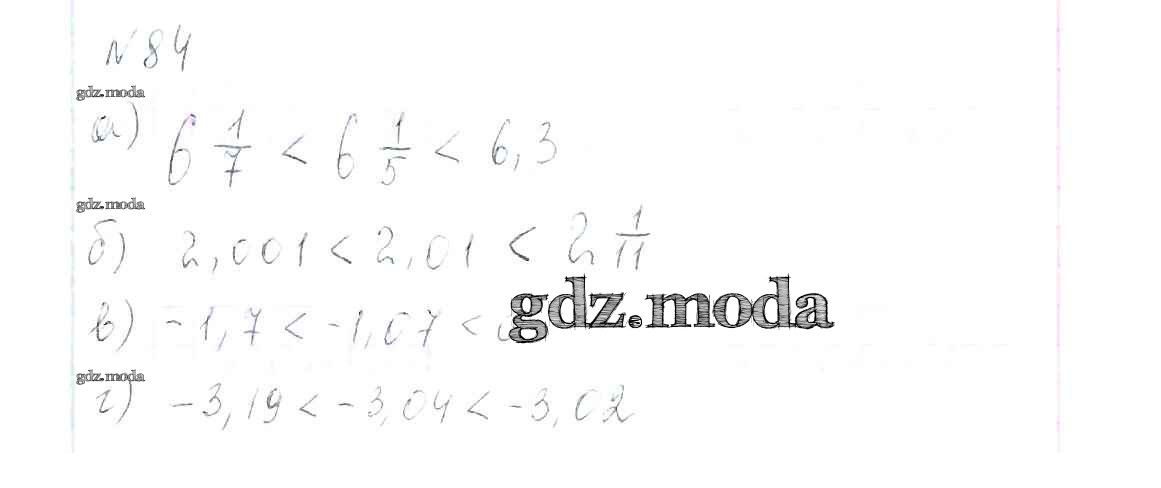 №84
gdz.moda
а) 6 1/7 < 6 1/5 < 6,3
gdz.moda
б) 2,001 < 2,01 < 2 1/11
gdz.moda
в) -1,7 < -1,07 <
gdz.moda
г) -3,19 < -3,04 < -3,02